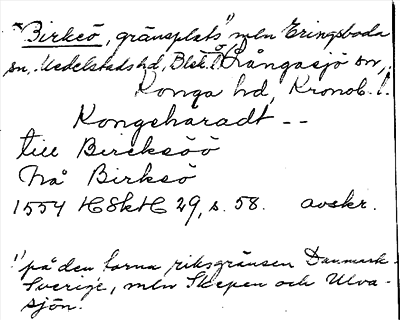 Birksö, gränsplats 1) mln Eringsboda
sn, Medelstads hd, Blek. l. o. Långasjö sn,
Konga hd, Kronob. l.
Kongeharadt --
till Bircksöö
frå Birksö
1554 HSkH 29, s. 58. avskr.
1) på den forna riksgränsen Danmark-
Sverige, mln Skepen och Ulva-
sjön.